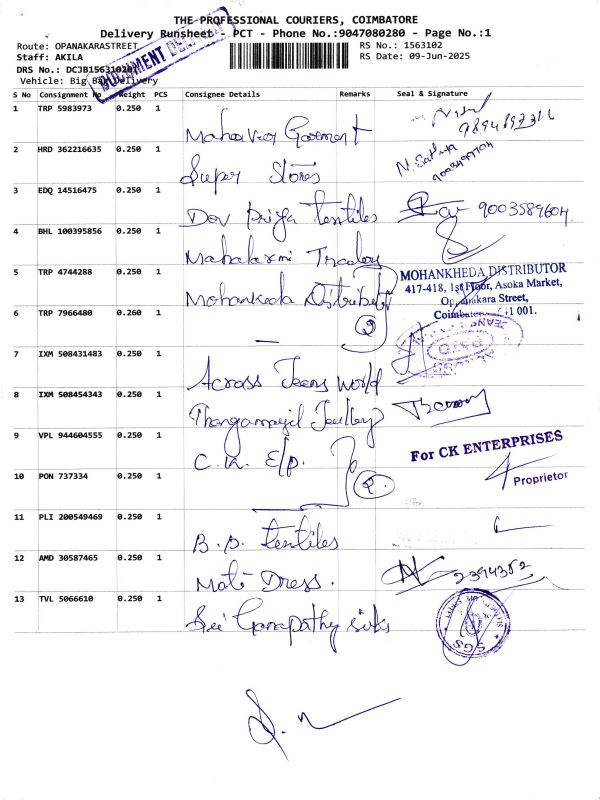 THE PROFESSIONAL COURIERS, COIMBATORE
Delivery Runsheet - PCT - Phone No.:9047080280 - Page No.:1
Route: OPANAKARASTREET
RS No.: 1563102
Staff: AKILA
RS Date: 09-Jun-2025
DRS No.: DCJB15631
DOCUMENT
Vehicle: Big Bag Delivery
S No Consignment No Weight PCS Consignee Details Remarks Seal & Signature
1 TRP 5983973 0.250 1
2 HRD 362216635 0.250 1 Super Stores
3 EDQ 14516475 0.250 1 Dev Priya textiles 9003589604
4 BHL 100395856 0.250 1 Mahalaxmi Traders
5 TRP 4744288 0.250 1 Mohankeda Distributor
MOHANKHEDA DISTRIBUTOR
417-418, 1st Floor, Asoka Market,
6 TRP 7966480 0.260 1 2
7 IXM 508431483 0.250 1 Across Jeens World
8 IXM 508454343 0.250 1 Thangamayil
9 VPL 944604555 0.250 1 C.K. E/p.
For CK ENTERPRISES
Proprietor
10 PON 737334 0.250 1 2.
11 PLI 200549469 0.250 1 B.P. textiles
12 AMD 30587465 0.250 1 Moti Dress.
13 TVL 5066610 0.250 1 Sri Ganapathy silks
SGS